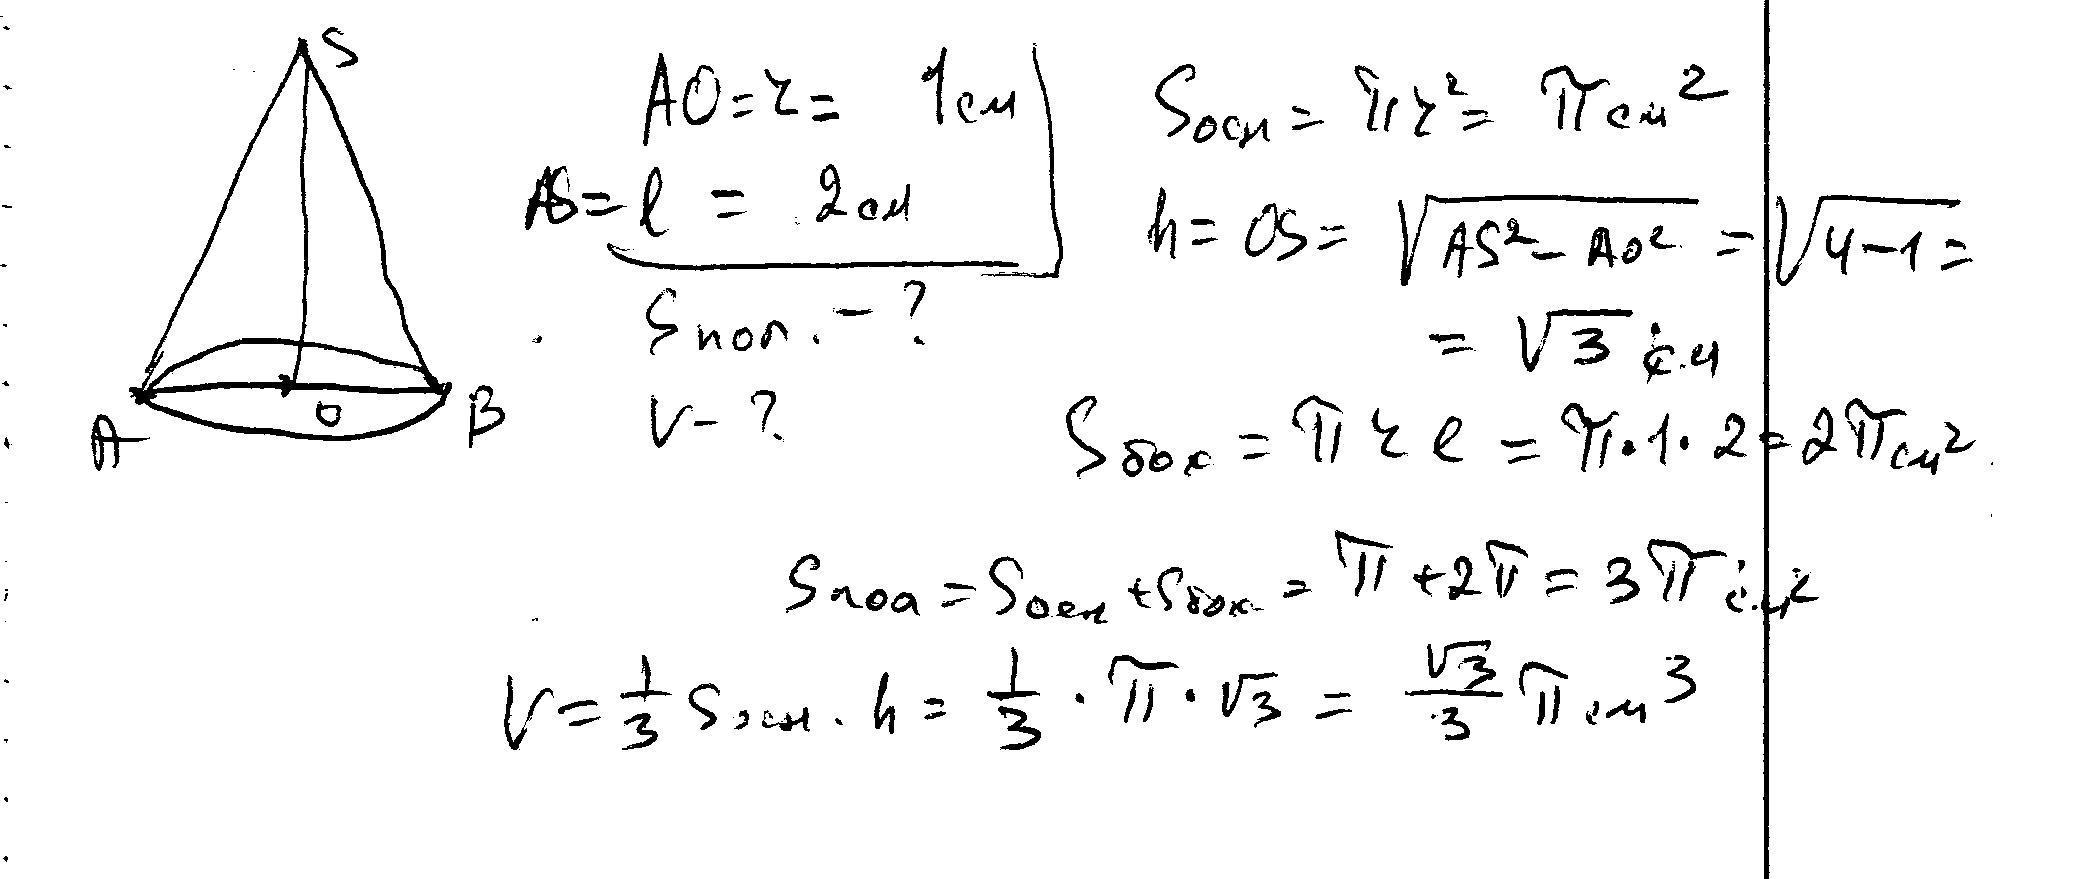 S
A O B
AO = r = 1 см
AS = l = 2 см
Sпол. - ?
V - ?
Sосн = πr² = π см²
h = OS = √(AS² - AO²) = √(4-1) =
= √3 см
Sбок = π r l = π·1·2 = 2π см²
Sпол = Sосн + Sбок = π + 2π = 3π см²
V = 1/3 Sосн · h = 1/3 · π · √3 = √3/3 π см³